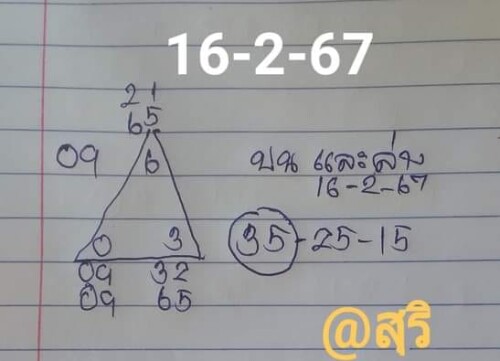 16-2-67
21
65
09
6
บน และล่าง
16-2-67
0 3
35-25-15
09 32
09 65
@สุริ